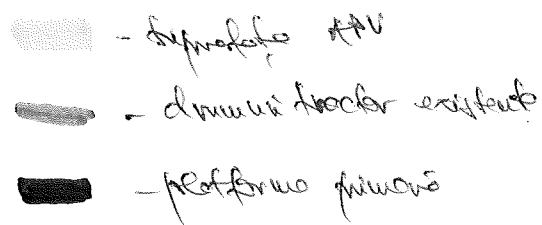 - suprafața APV
- drumuri tractor existente
- platforma primară